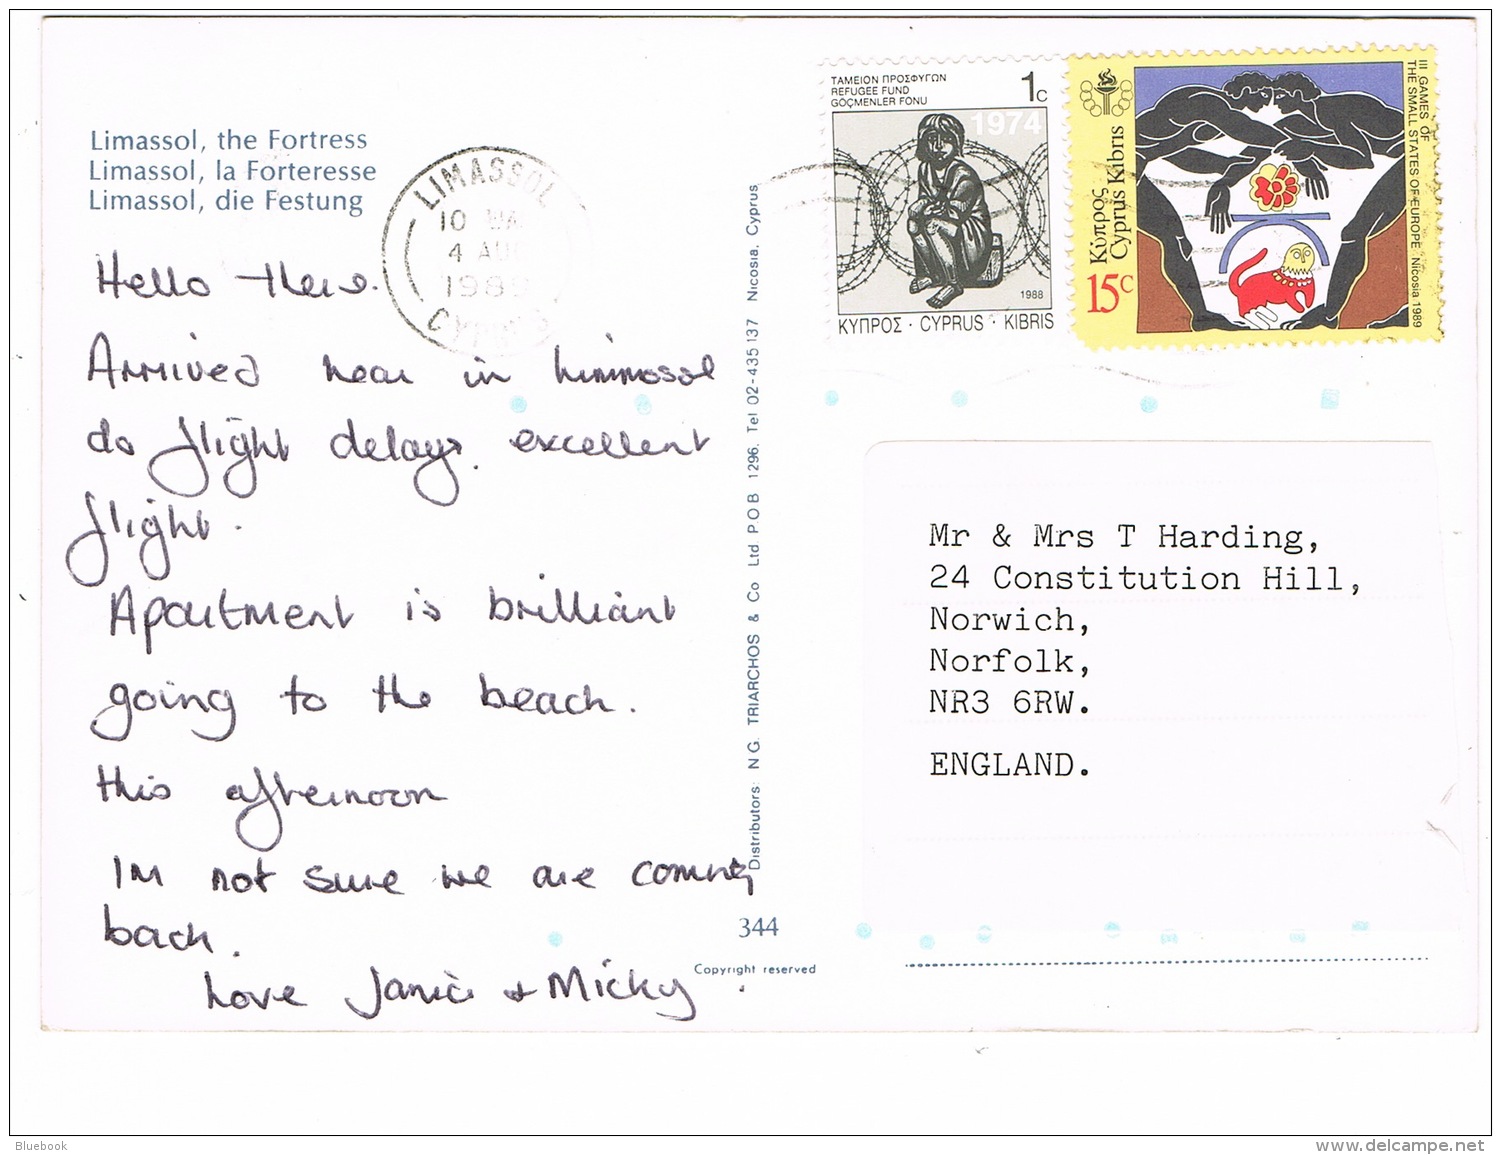 Limassol, the Fortress
Limassol, la Forteresse
Limassol, die Festung
LIMASSOL
10
4 AU
198
ΤΑΜΕΙΟΝ ΠΡΟΣΦΥΓΩΝ
REFUGEE FUND
GÖÇMENLER FONU
1c
1974
1988
ΚΥΠΡΟΣ · CYPRUS · KIBRIS
Κύπρος
Cyprus Kıbrıs
15c
III GAMES OF
THE SMALL STATES OF EUROPE Nicosia 1989
Hello there.
Arrived hear in Limmosol
do flight delays. excellent
flight.
Apartment is brilliant
going to the beach.
this afternoon
Im not sure we are coming
back.
Love Janice + Micky
Distributors: N.G. TRIARCHOS & Co Ltd. P.O.B 1296, Tel 02-435137 Nicosia, Cyprus
344
Copyright reserved
Mr & Mrs T Harding,
24 Constitution Hill,
Norwich,
Norfolk,
NR3 6RW.
ENGLAND.
Bluebook
www.delcampe.net